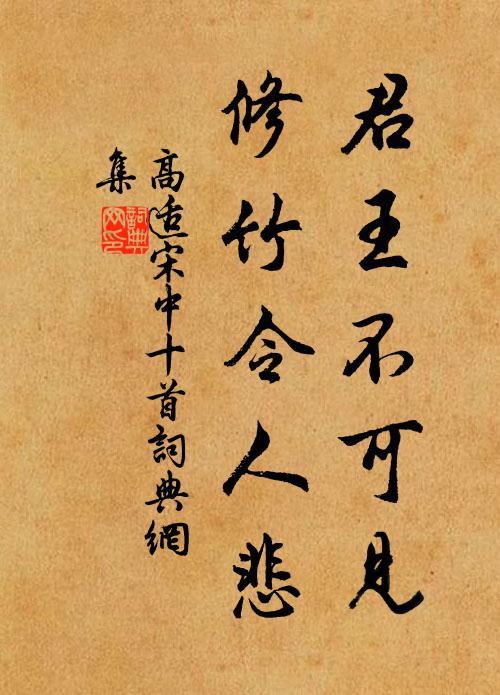 君王不可見
修竹令人悲
高適宋中十首詞典網
集
詞典網印